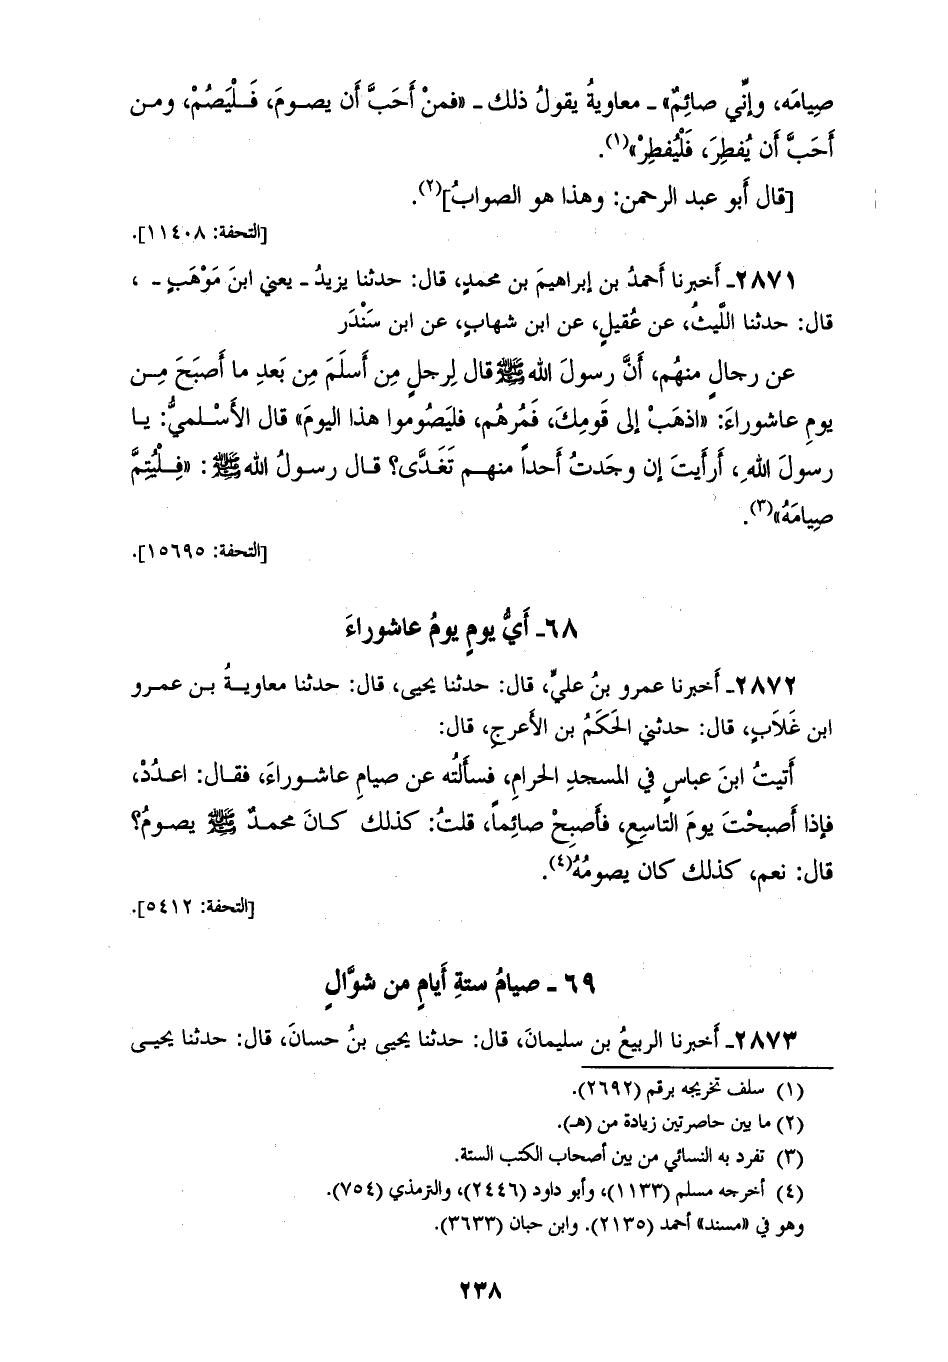 صِيامَه، وإنِّي صائِمٌ» ـ معاويةُ يقولُ ذلك ـ «فمنْ أَحَبَّ أن يصومَ، فَلْيَصُمْ، ومن
أَحَبَّ أن يُفطِرَ، فَلْيُفطِرْ»(١).
[قال أبو عبد الرحمن: وهذا هو الصوابُ](٢).
[التحفة: ١١٤٠٨].
٢٨٧١ـ أخبرنا أحمدُ بن إبراهيمَ بن محمدٍ، قال: حدثنا يزيدُ ـ يعني ابنَ مَوْهَبٍ ـ ،
قال: حدثنا اللَّيثُ، عن عُقيلٍ، عن ابن شهابٍ، عن ابن سَنْدَر
عن رجالٍ منهُم، أنَّ رسولَ الله ﷺ قال لِرجلٍ مِن أسلَمَ مِن بَعدِ ما أَصبَحَ مِن
يومِ عاشوراءَ: «اذهَبْ إلى قَومِكَ، فَمُرهُم، فليَصُوموا هذا اليومَ» قال الأَسْلميُّ: يا
رسولَ اللهِ، أَرأَيتَ إن وجَدتُ أحداً منهم تَغَدَّى؟ قال رسولُ الله ﷺ: «فلْيُتِمَّ
صِيامَهُ»(٣).
[التحفة: ١٥٦٩٥].
٦٨ـ أَيُّ يومٍ يومُ عاشوراءَ
٢٨٧٢ـ أخبرنا عمرو بنُ عليٍّ، قال: حدثنا يحيى، قال: حدثنا معاويةُ بن عمرو
ابن غَلاَبٍ، قال: حدثني الحَكَمُ بن الأعرجِ، قال:
أَتيتُ ابنَ عباسٍ في المسجدِ الحرامِ، فسأَلتُه عن صيامِ عاشوراءَ، فقال: اعدُدْ،
فإذا أَصبحْتَ يومَ التاسِعِ، فأَصبِحْ صائِماً، قلتُ: كذلك كانَ محمدٌ ﷺ يصومُ؟
قال: نعم، كذلك كان يصومُهُ(٤).
[التحفة: ٥٤١٢].
٦٩ ـ صيامُ ستةِ أَيامٍ من شوَّالٍ
٢٨٧٣ـ أخبرنا الربيعُ بن سليمانَ، قال: حدثنا يحيى بنُ حسانَ، قال: حدثنا يحيى
(١) سلف تخريجه برقم (٢٦٩٢).
(٢) ما بين حاصرتين زيادة من (هـ).
(٣) تفرد به النسائي من بين أصحاب الكتب الستة.
(٤) أخرجه مسلم (١١٣٣)، وأبو داود (٢٤٤٦)، والترمذي (٧٥٤).
وهو في «مسند» أحمد (٢١٣٥). وابن حبان (٣٦٣٣).
٢٣٨